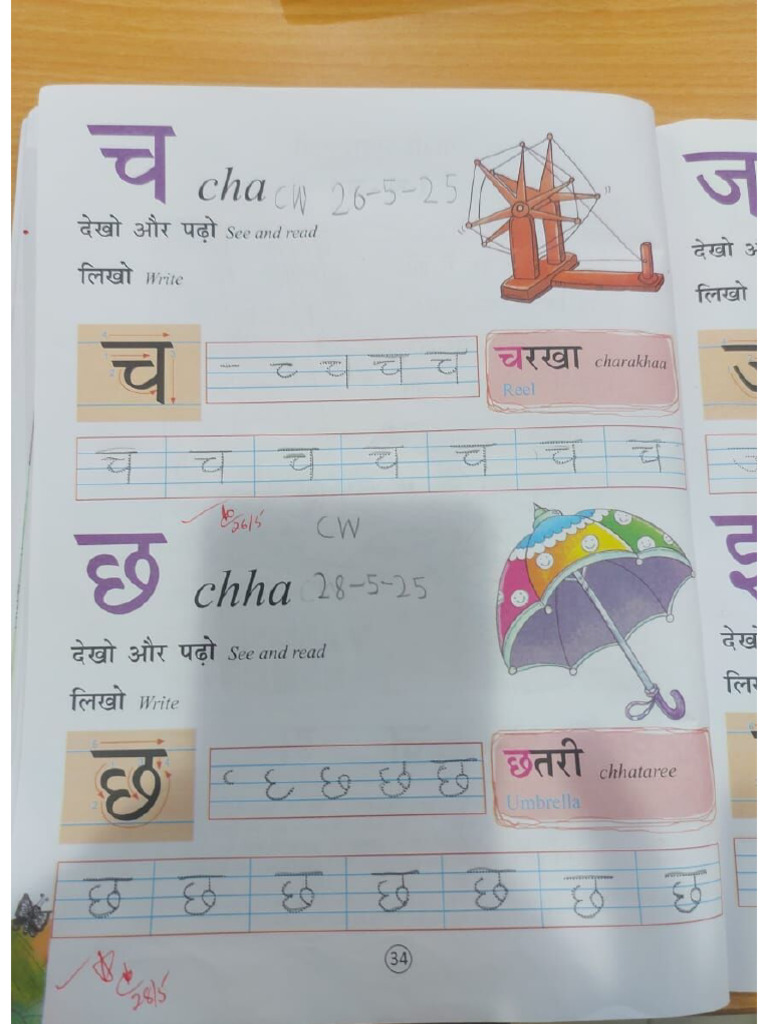 च cha CW 26-5-25
देखो और पढ़ो See and read
लिखो Write
च च च च
च
चरखा charakhaa
Reel
च च च च च च च
26/5
CW
छ chha 28-5-25
देखो और पढ़ो See and read
लिखो Write
छ छ छ
छ
छतरी chhataree
Umbrella
छ छ छ छ छ छ छ
34
28/5
ज
देखो
लिखो